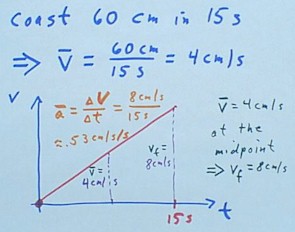 Coast 60 cm in 15 s
⇒ V̄ = 60 cm / 15 s = 4 cm/s
V
ā = ΔV / Δt = 8 cm/s / 15 s
≈ .53 cm/s/s
v̄ =
4 cm/s
v_f =
8 cm/s
15 s
t
v̄ = 4 cm/s
at the
midpoint
⇒ v_f = 8 cm/s